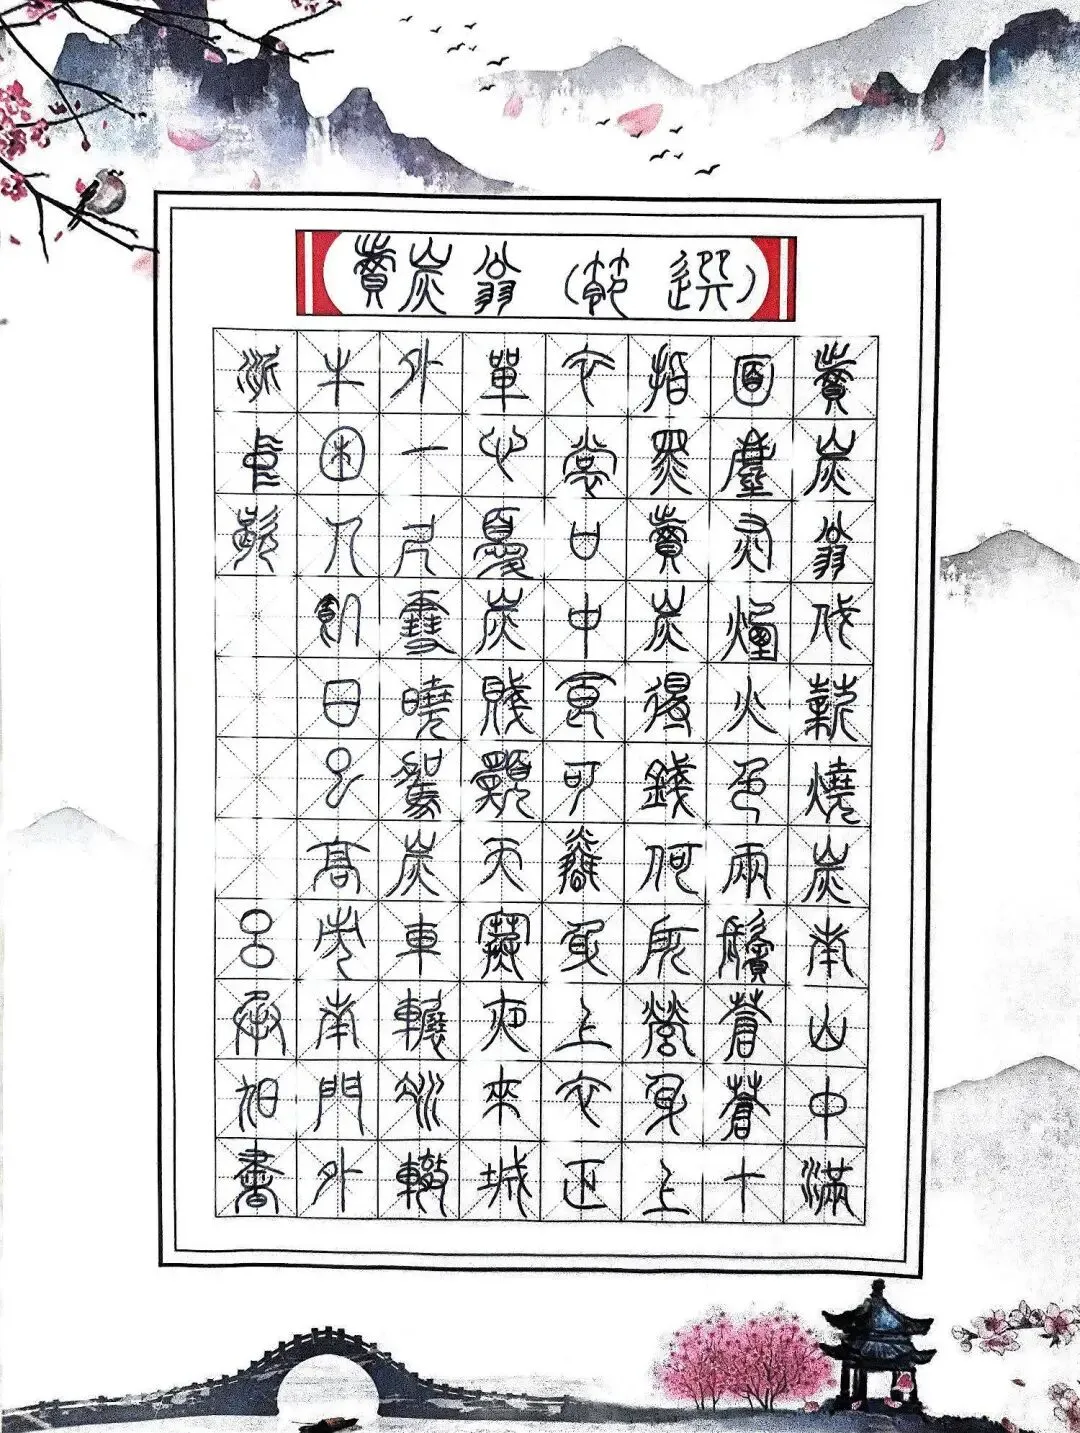 賣炭翁（節選）
賣炭翁伐薪燒炭南山中滿
面塵灰煙火色兩鬢蒼蒼十
指黑賣炭得錢何所營身上
衣裳口中食可憐身上衣正
單心憂炭賤願天寒夜來城
外一尺雪曉駕炭車輾冰轍
牛困人飢日已高市南門外
泥中歇
呂承旭書